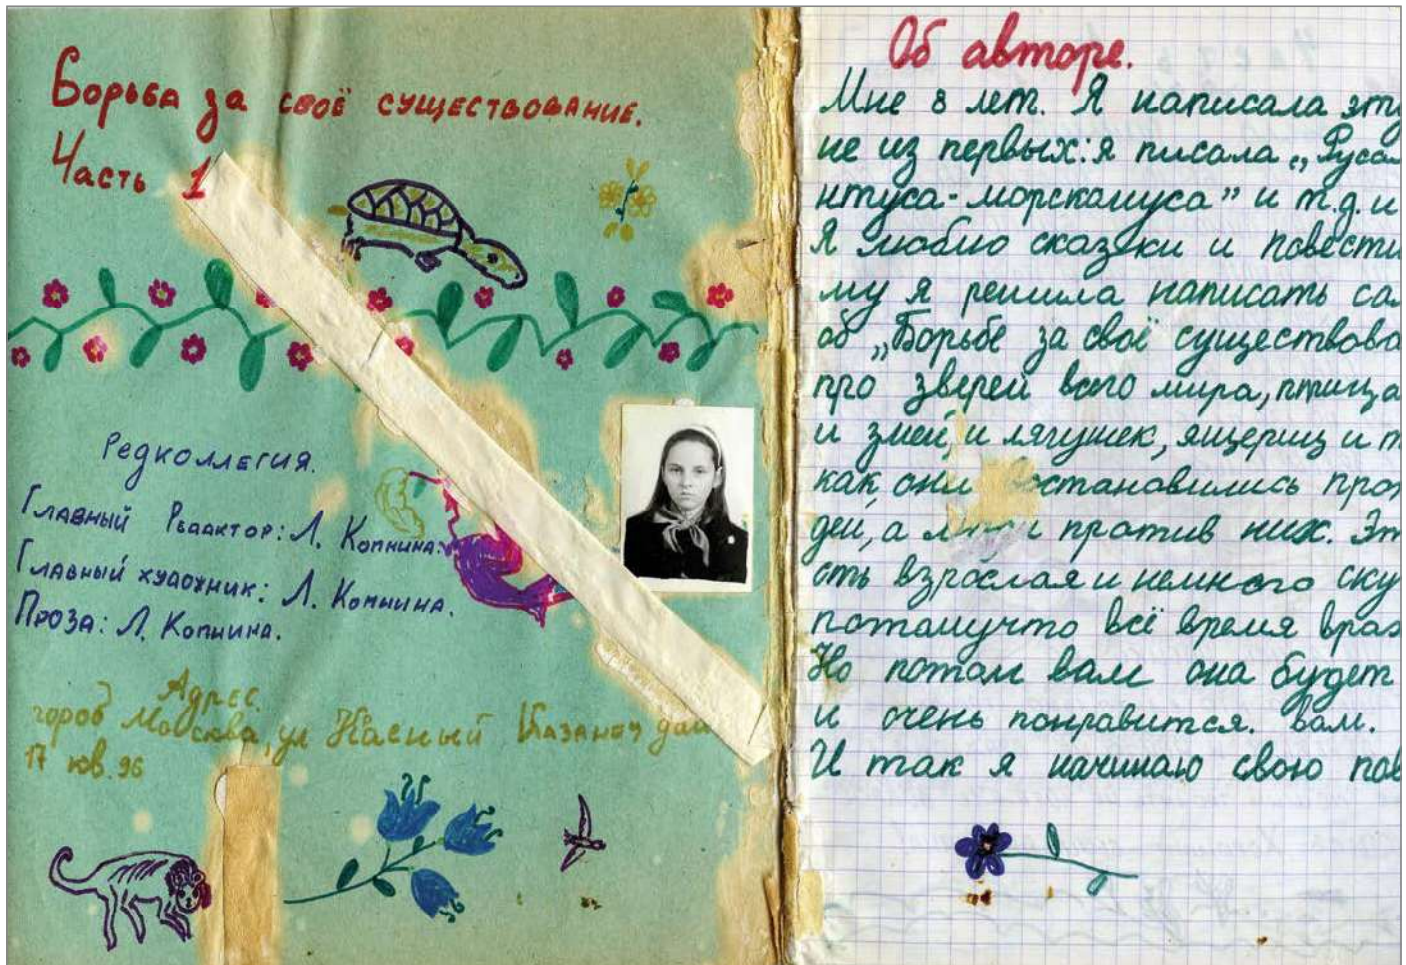 Борьба за своё существование.
Часть 1
Редколлегия.
Главный Редактор: Л. Копнина.
Главный художник: Л. Копнина.
Проза: Л. Копнина.
Адрес.
город Москва, ул
17 кв. 96
Об авторе.
Мне 8 лет. Я написала эту
не из первых: я писала „Руса
нтуса-морскануса” и т.д. и
Я люблю сказки и повести
му я решила написать са
об „Борьбе за своё существова
про зверей всего мира, птица
и змей, и лягушек, ящериц и т
как, они востановились про
дей, а люди против них. Эт
сть взрослая и немного ску
потамучто всё время враж
Но потом вам она будет
и очень понравится. вам.
И так я начинаю свою пов